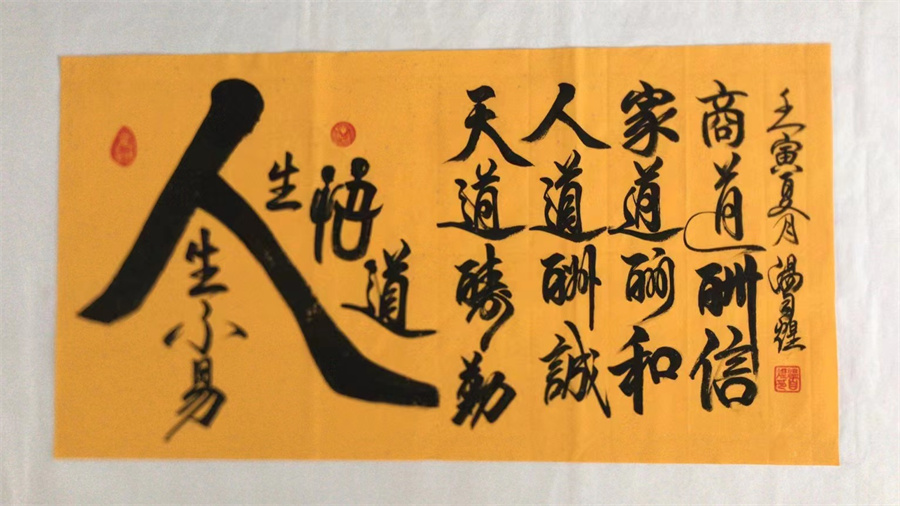 人生不易
人生悟道
天道醻勤
人道酬誠
家道酬和
商道酬信
壬寅夏月 湯